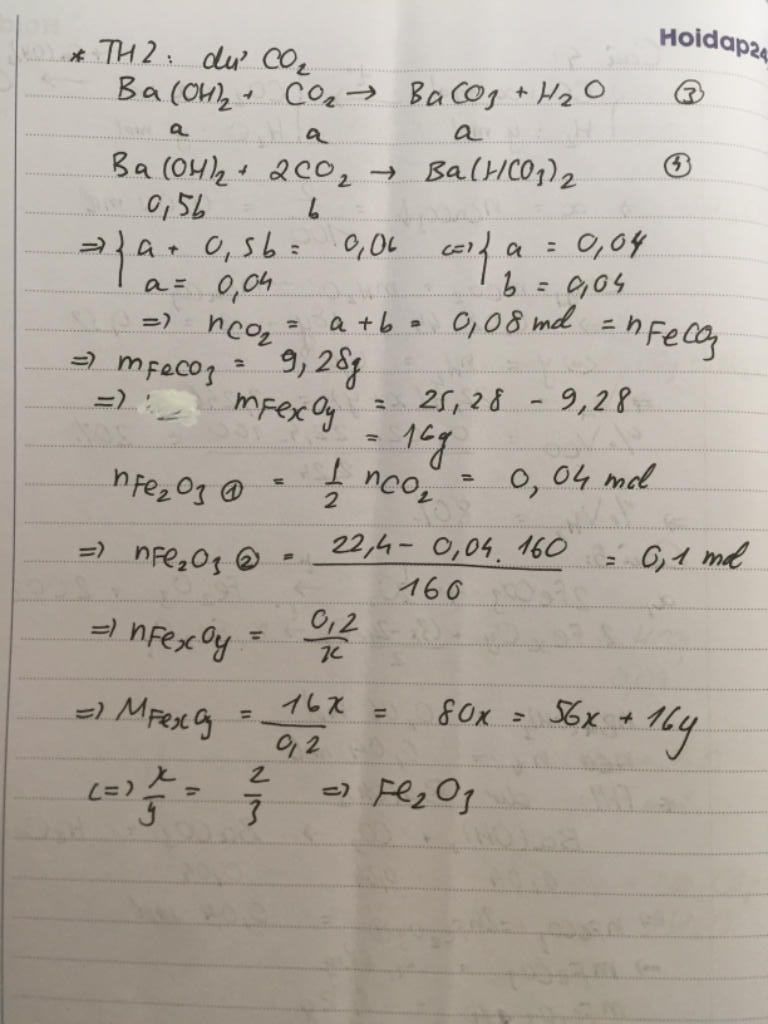 Hoidap24
* TH2: dư CO₂
Ba(OH)₂ + CO₂ → BaCO₃ + H₂O ③
a a a
Ba(OH)₂ + 2CO₂ → Ba(HCO₃)₂ ④
0,5b b
=> { a + 0,5b = 0,06 <=> { a = 0,04
a = 0,04 b = 0,04
=> nCO₂ = a + b = 0,08 mol = nFeCO₃
=> mFeCO₃ = 9,28g
=> mFexOy = 25,28 - 9,28
= 16g
nFe₂O₃ ① = 1/2 nCO₂ = 0,04 mol
=> nFe₂O₃ ② = (22,4 - 0,04. 160)/160 = 0,1 mol
=> nFexOy = 0,2/x
=> MFexOy = 16x/0,2 = 80x = 56x + 16y
<=> x/y = 2/3 => Fe₂O₃